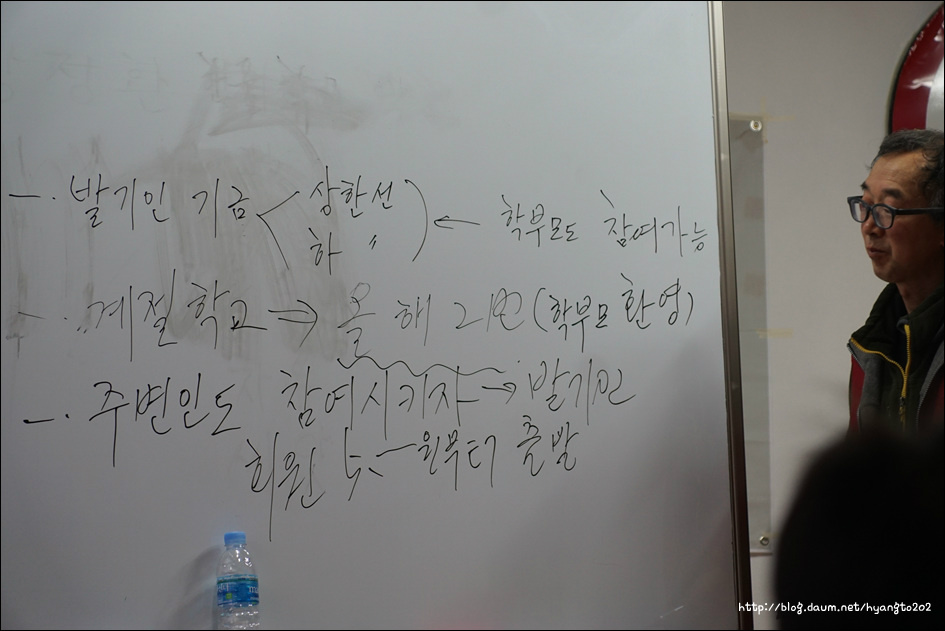 一. 발기인 기금 < 상한선
하 〃 ) ← 학부모도 참여가능
一. 계절학교 → 올해 2번 (학부모 환영)
一. 주변인도 참여시키자 → 발기인
회원 부터 출발
http://blog.daum.net/hyangto202